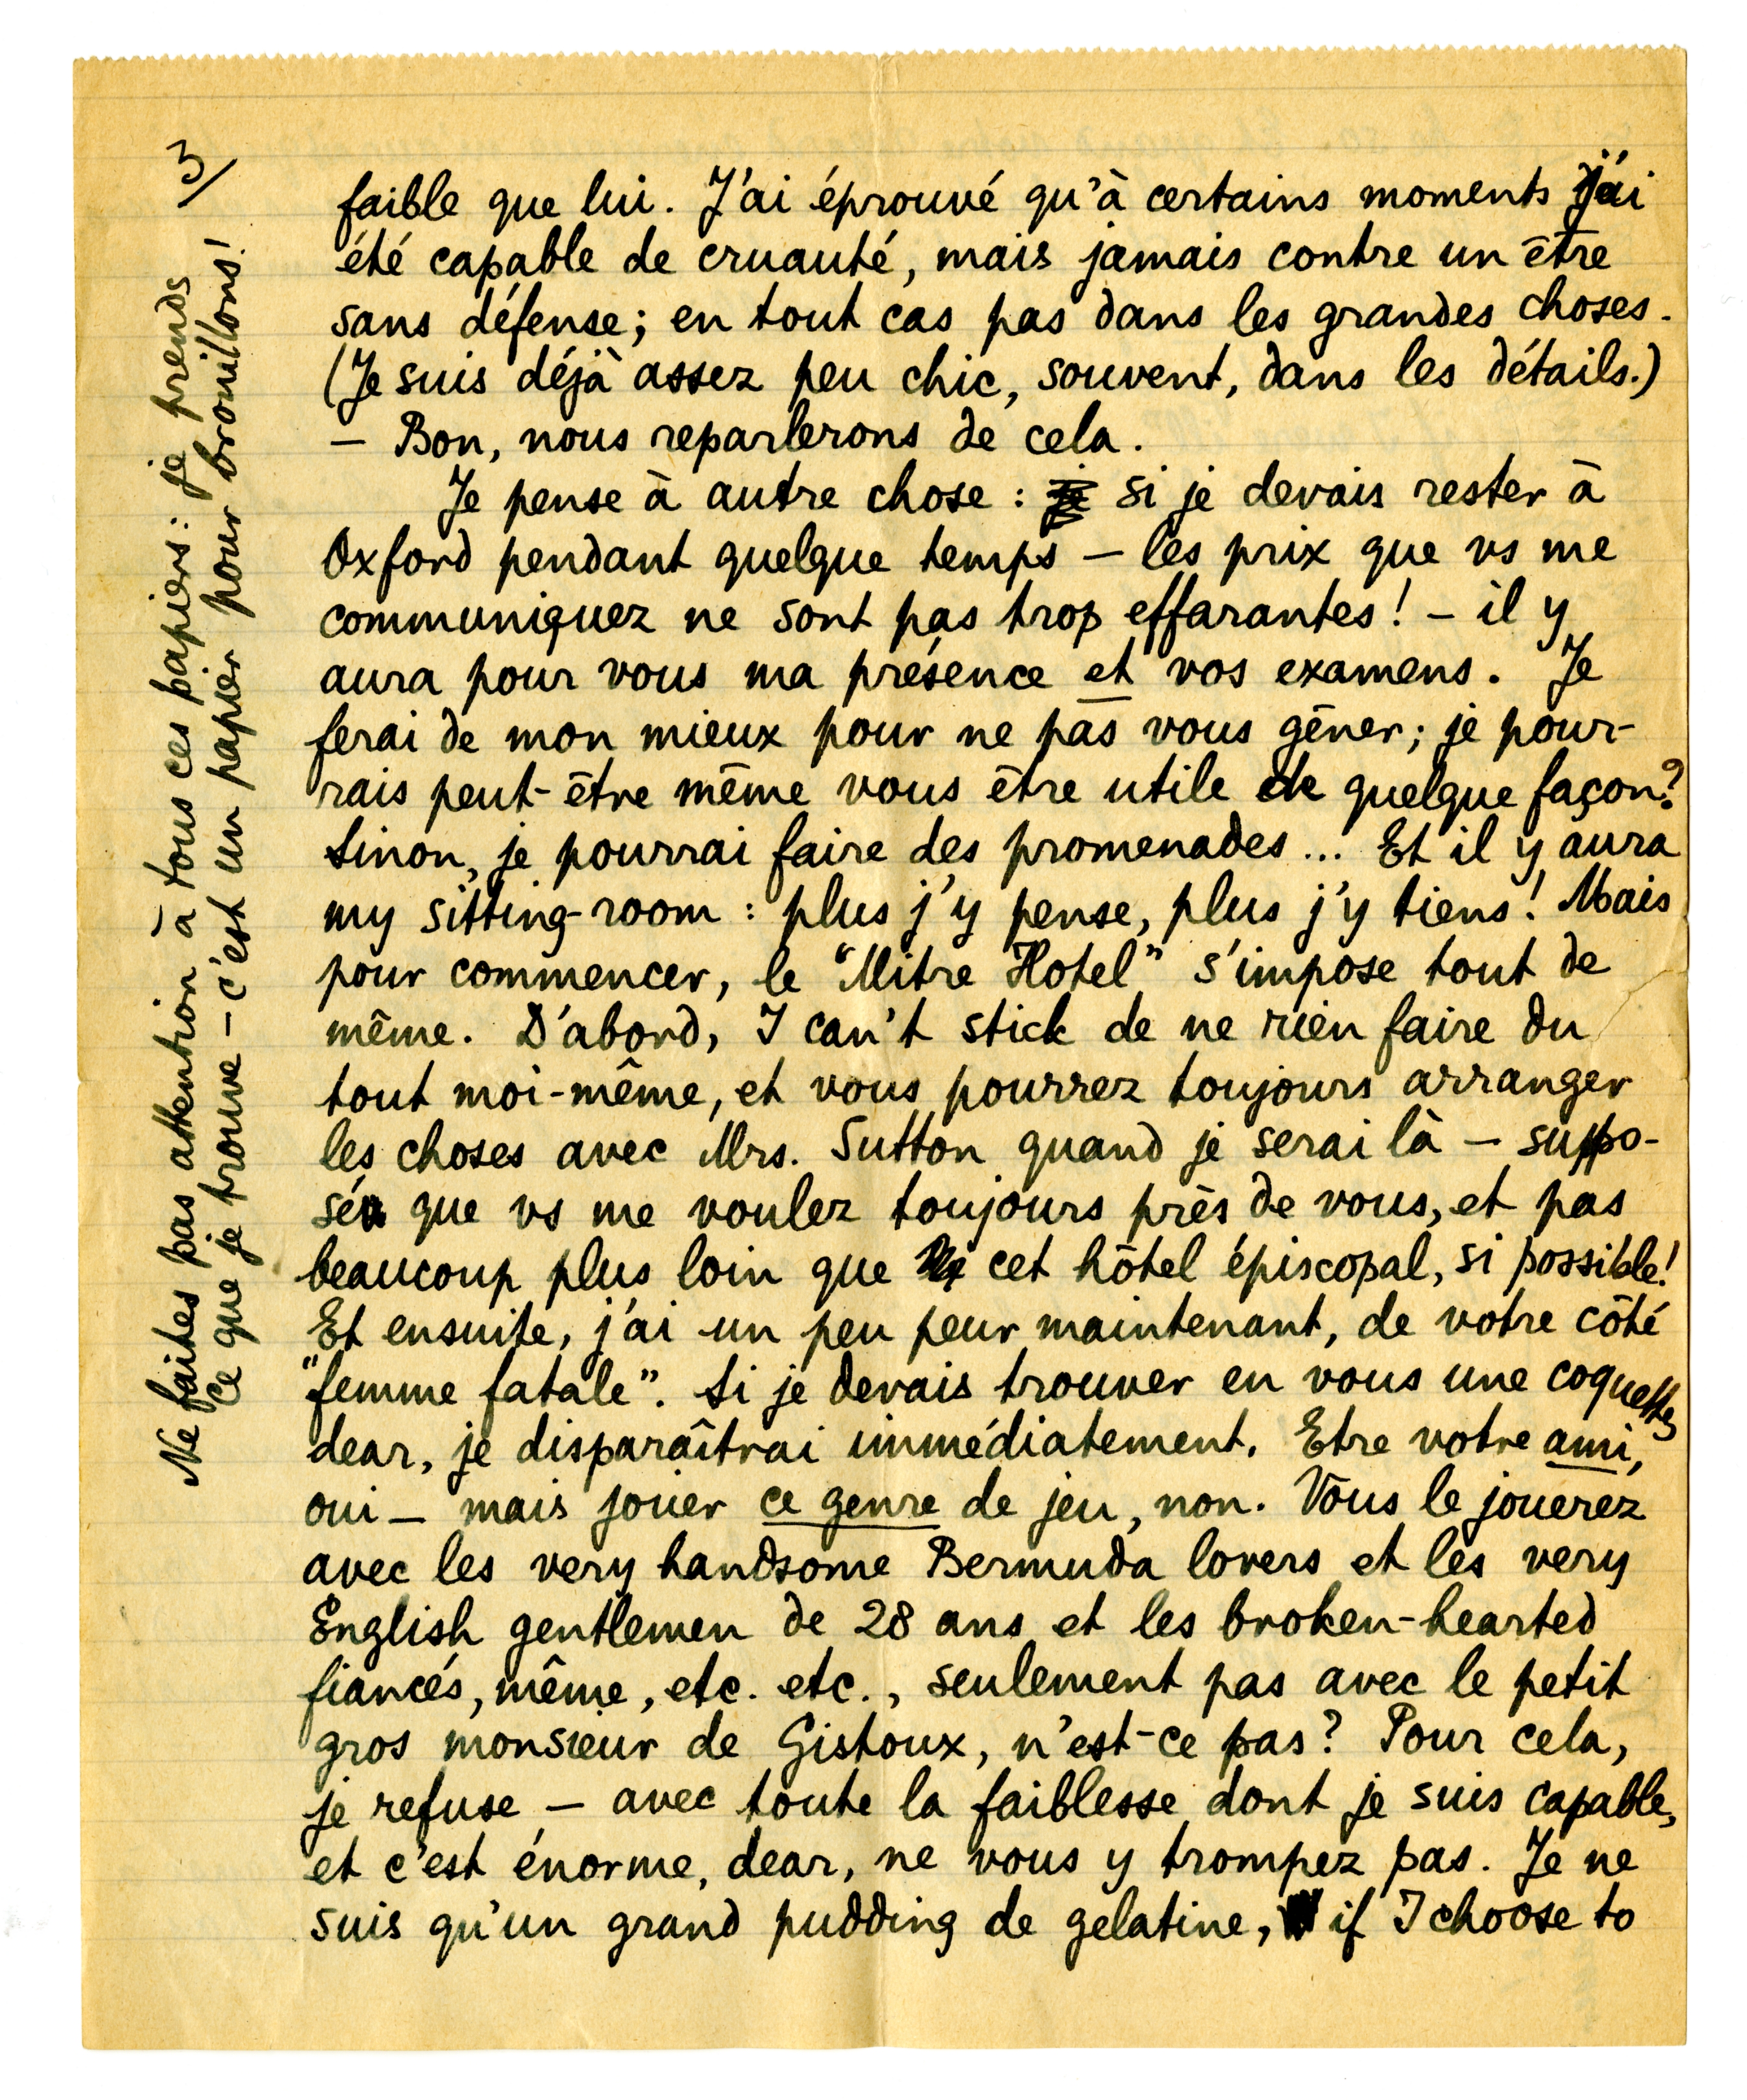 3/
faible que lui. J'ai éprouvé qu'à certains moments j'ai
été capable de cruauté, mais jamais contre un être
sans défense; en tout cas pas dans les grandes choses.
(Je suis déjà assez peu chic, souvent, dans les détails.)
— Bon, nous reparlerons de cela.
Je pense à autre chose : je si je devais rester à
Oxford pendant quelque temps — les prix que vs me
communiquez ne sont pas trop effarantes! — il y
aura pour vous ma présence et vos examens. Je
ferai de mon mieux pour ne pas vous gêner; je pour-
rais peut-être même vous être utile de quelque façon?
Sinon, je pourrai faire des promenades... Et il y aura
my sitting-room : plus j'y pense, plus j'y tiens! Mais
pour commencer, le "Mitre Hotel" s'impose tout de
même. D'abord, I can't stick de ne rien faire du
tout moi-même, et vous pourrez toujours arranger
les choses avec Mrs. Sutton quand je serai là — suppo-
sé que vs me voulez toujours près de vous, et pas
beaucoup plus loin que cet hôtel épiscopal, si possible!
Et ensuite, j'ai un peu peur maintenant, de votre côté
"femme fatale". Si je devais trouver en vous une coquette,
dear, je disparaîtrai immédiatement. Etre votre ami,
oui — mais jouer ce genre de jeu, non. Vous le jouerez
avec les very handsome Bermuda lovers et les very
English gentlemen de 28 ans et les broken-hearted
fiancés, même, etc. etc., seulement pas avec le petit
gros monsieur de Gistoux, n'est-ce pas? Pour cela,
je refuse — avec toute la faiblesse dont je suis capable,
et c'est énorme, dear, ne vous y trompez pas. Je ne
suis qu'un grand pudding de gelatine, if I choose to
Ne faites pas attention à tous ces papiers : je prends
ce que je trouve — c'est un papier pour brouillons!